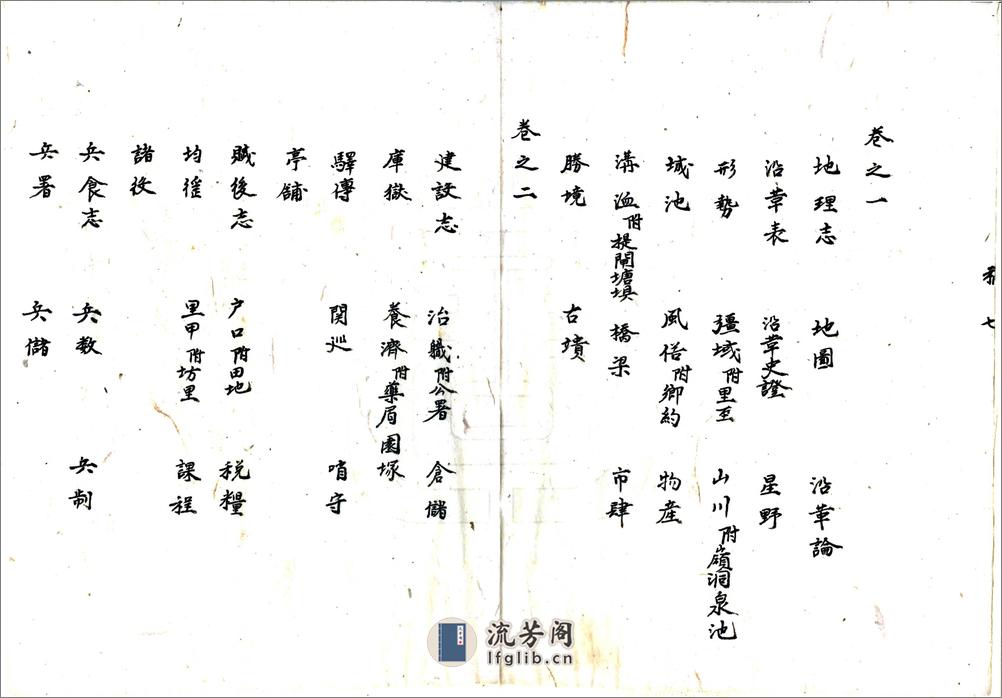 卷之一
地理志 地圖 沿革論
沿革表 沿革史證 星野
形勢 彊域附里至 山川附嶺洞泉池
城池 風俗附鄉約 物産
溝洫附堤閘塘垻 橋梁 市肆
勝境 古墳
卷之二
建設志 治職附公署 倉儲
庫獄 養濟附藥局園塚
驛傳 関廵 哨守
亭舖
賦後志 户口附田地 税糧
均徭 里甲附坊里 課程
諸役
兵食志 兵数 兵制
兵署 兵儲
流芳阁
lfglib.cn